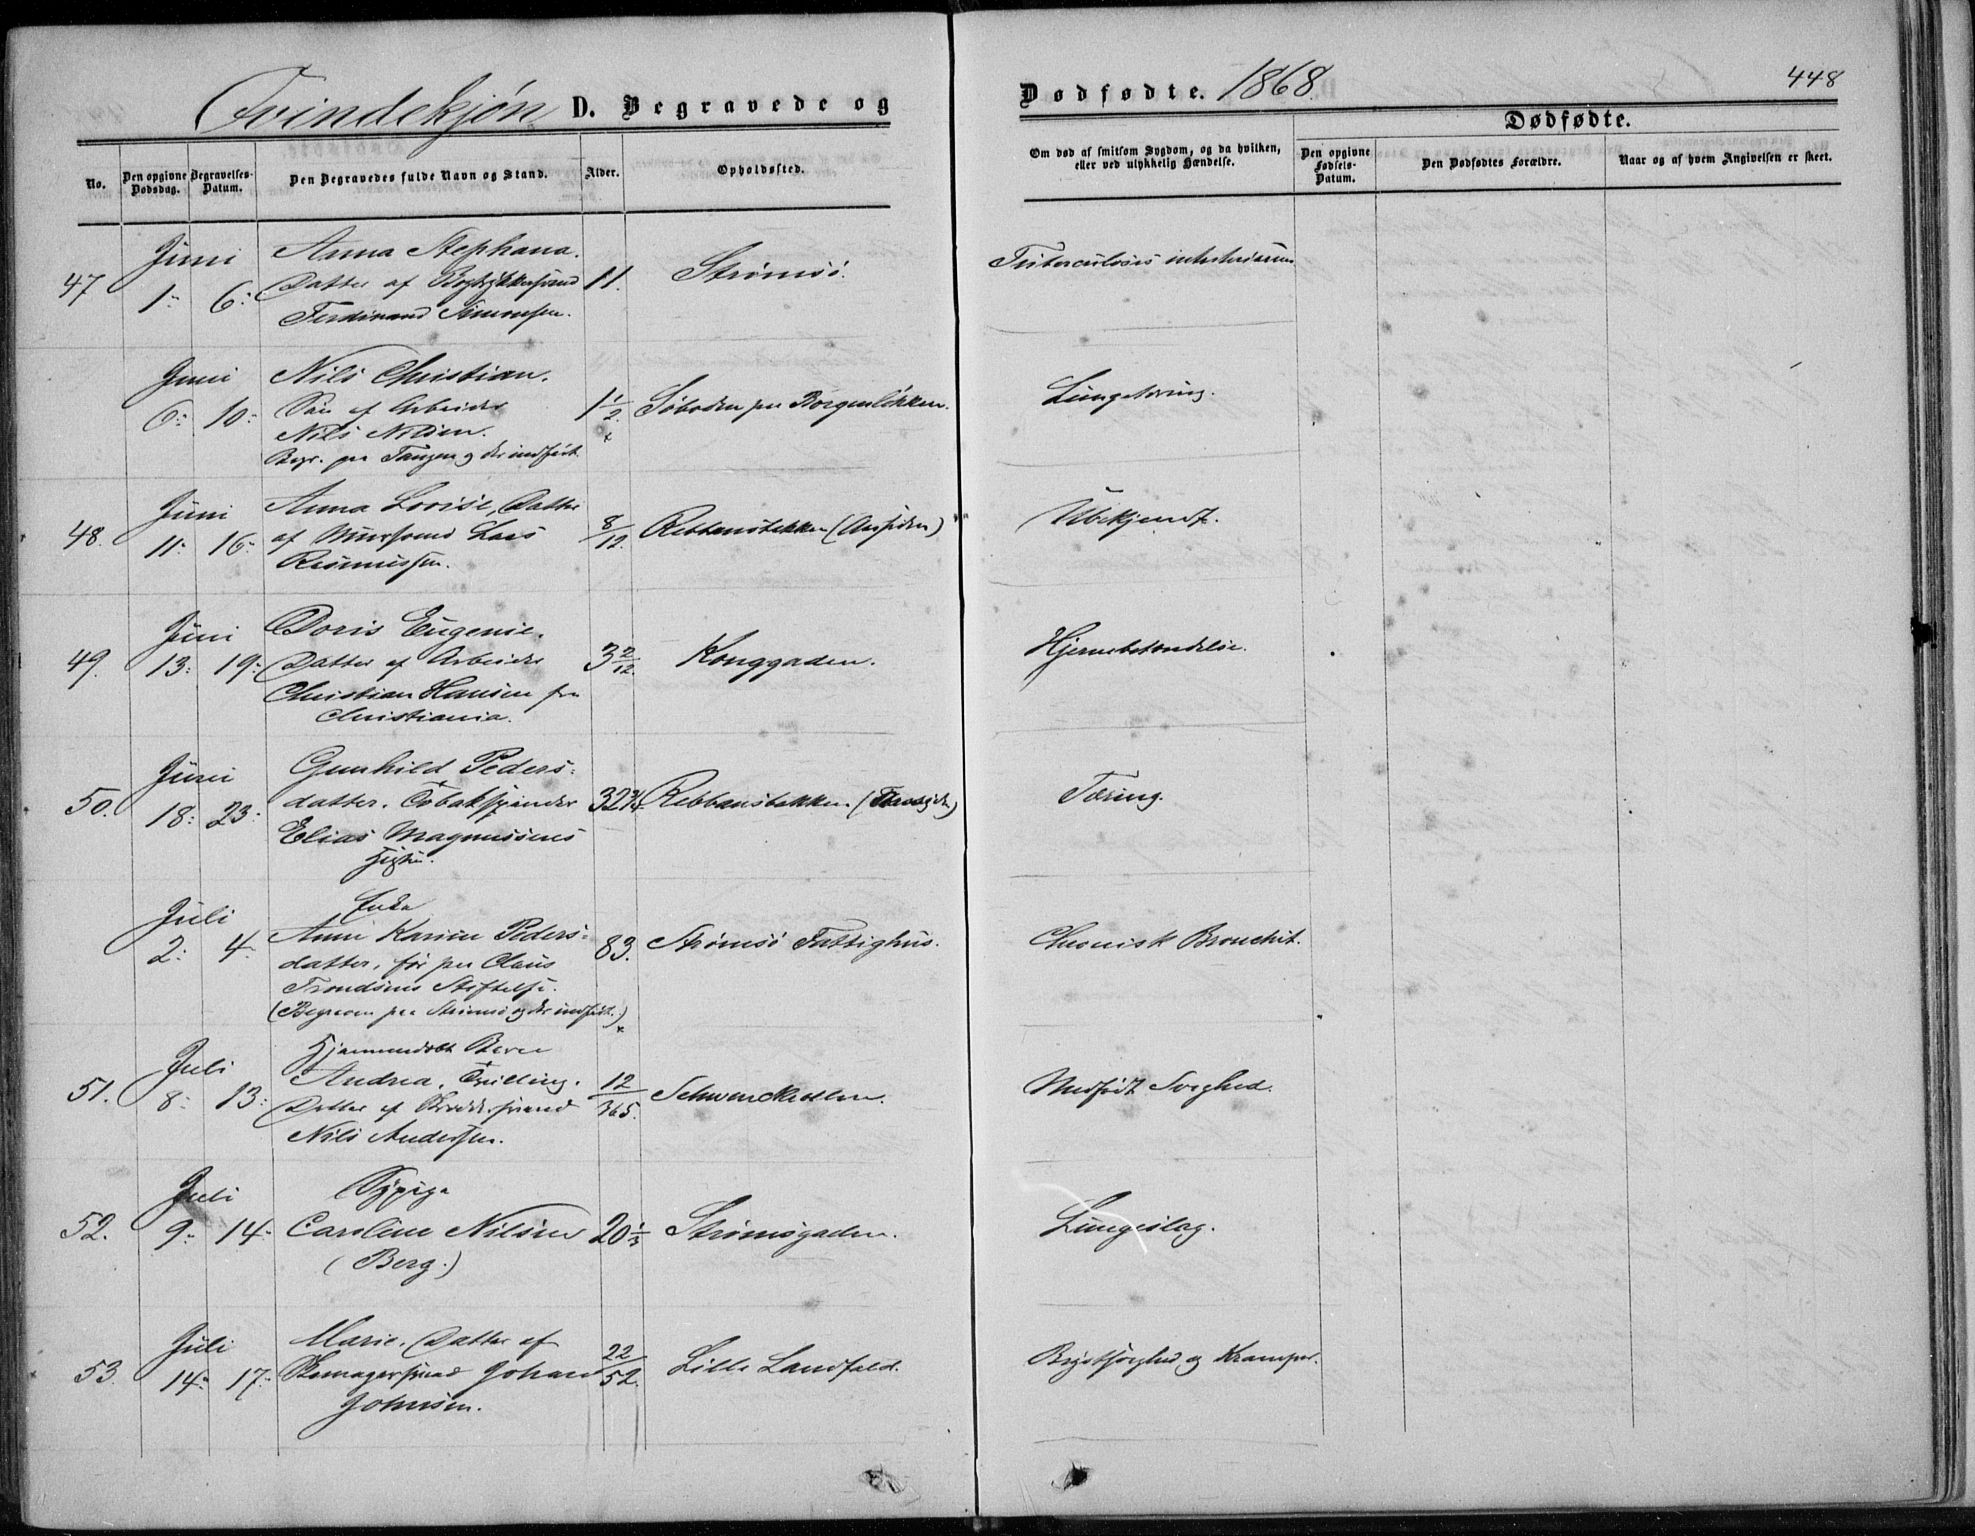 Qvindekjøn D. Begravede og
Dødfødte. 1868.
448
No.
Den opgivne Dødsdag.
Begravelses-Datum.
Den Begravedes fulde Navn og Stand.
Alder.
Opholdssted.
Om død af smitsom Sygdom, og da hvilken, eller ved ulykkelig Hændelse.
Dødfødte.
Den opgivne Fødsels-Datum.
Den Dødfødtes Forældre.
Naar og af hvem Angivelsen er skeet.
47 Juni 1: 6: Anna Stephana.
Datter af Bogtrykkersvend
Ferdinand Simonsen.
11. Strømsö. Tuberculosis
Juni 6: 10: Nils Christian.
Søn af Arbeider
Nils Nilsen.
Begr. paa Tangen og der indført.
1 1/2 × Søboden paa Borgenløkken. Lungetæring.
48. Juni 11: 16: Anna Lovise, Datter
af Mursvend Lars
Rasmussen.
8/12. Rebbansbakken Ubekjendt.
49. Juni 13: 19: Doris Eugenie.
Datter af Arbeider
Christian Hansen fra
Christiania.
3 2/12. Konggaden. Hjernebetændelse.
50. Juni 18: 23: Gunhild Peders-
datter. Tobakspinder
Elias Magnussens
Hustru.
32 3/4 Rebbansbakken Tæring.
Juli 2: 4: Enke
Anne Karine Peders-
datter, før paa Claus
Trondsens Stiftelse.
(Begraven paa Strømsö og der indført.) ×
83. Strømsö Fattighus. Chronisk Bronchit.
51. Juli 8: 13: Hjemmedøbt Barn
Andrea, Tvilling.
Datter af Skræddersvend
Nils Anderssen.
12/365. Schwenckedlen. Medfødt Svaghed.
52. Juli 9: 14: Sypige
Caroline Nilsen
(Berg.)
20 1/3 Strømsgaden. Lungeslag.
53. Juli 14: 17: Marie. Datter af
Skomagersvend Johan
Johnsen.
22/52. Lille Landfald. Brystsvaghed og Kramper.